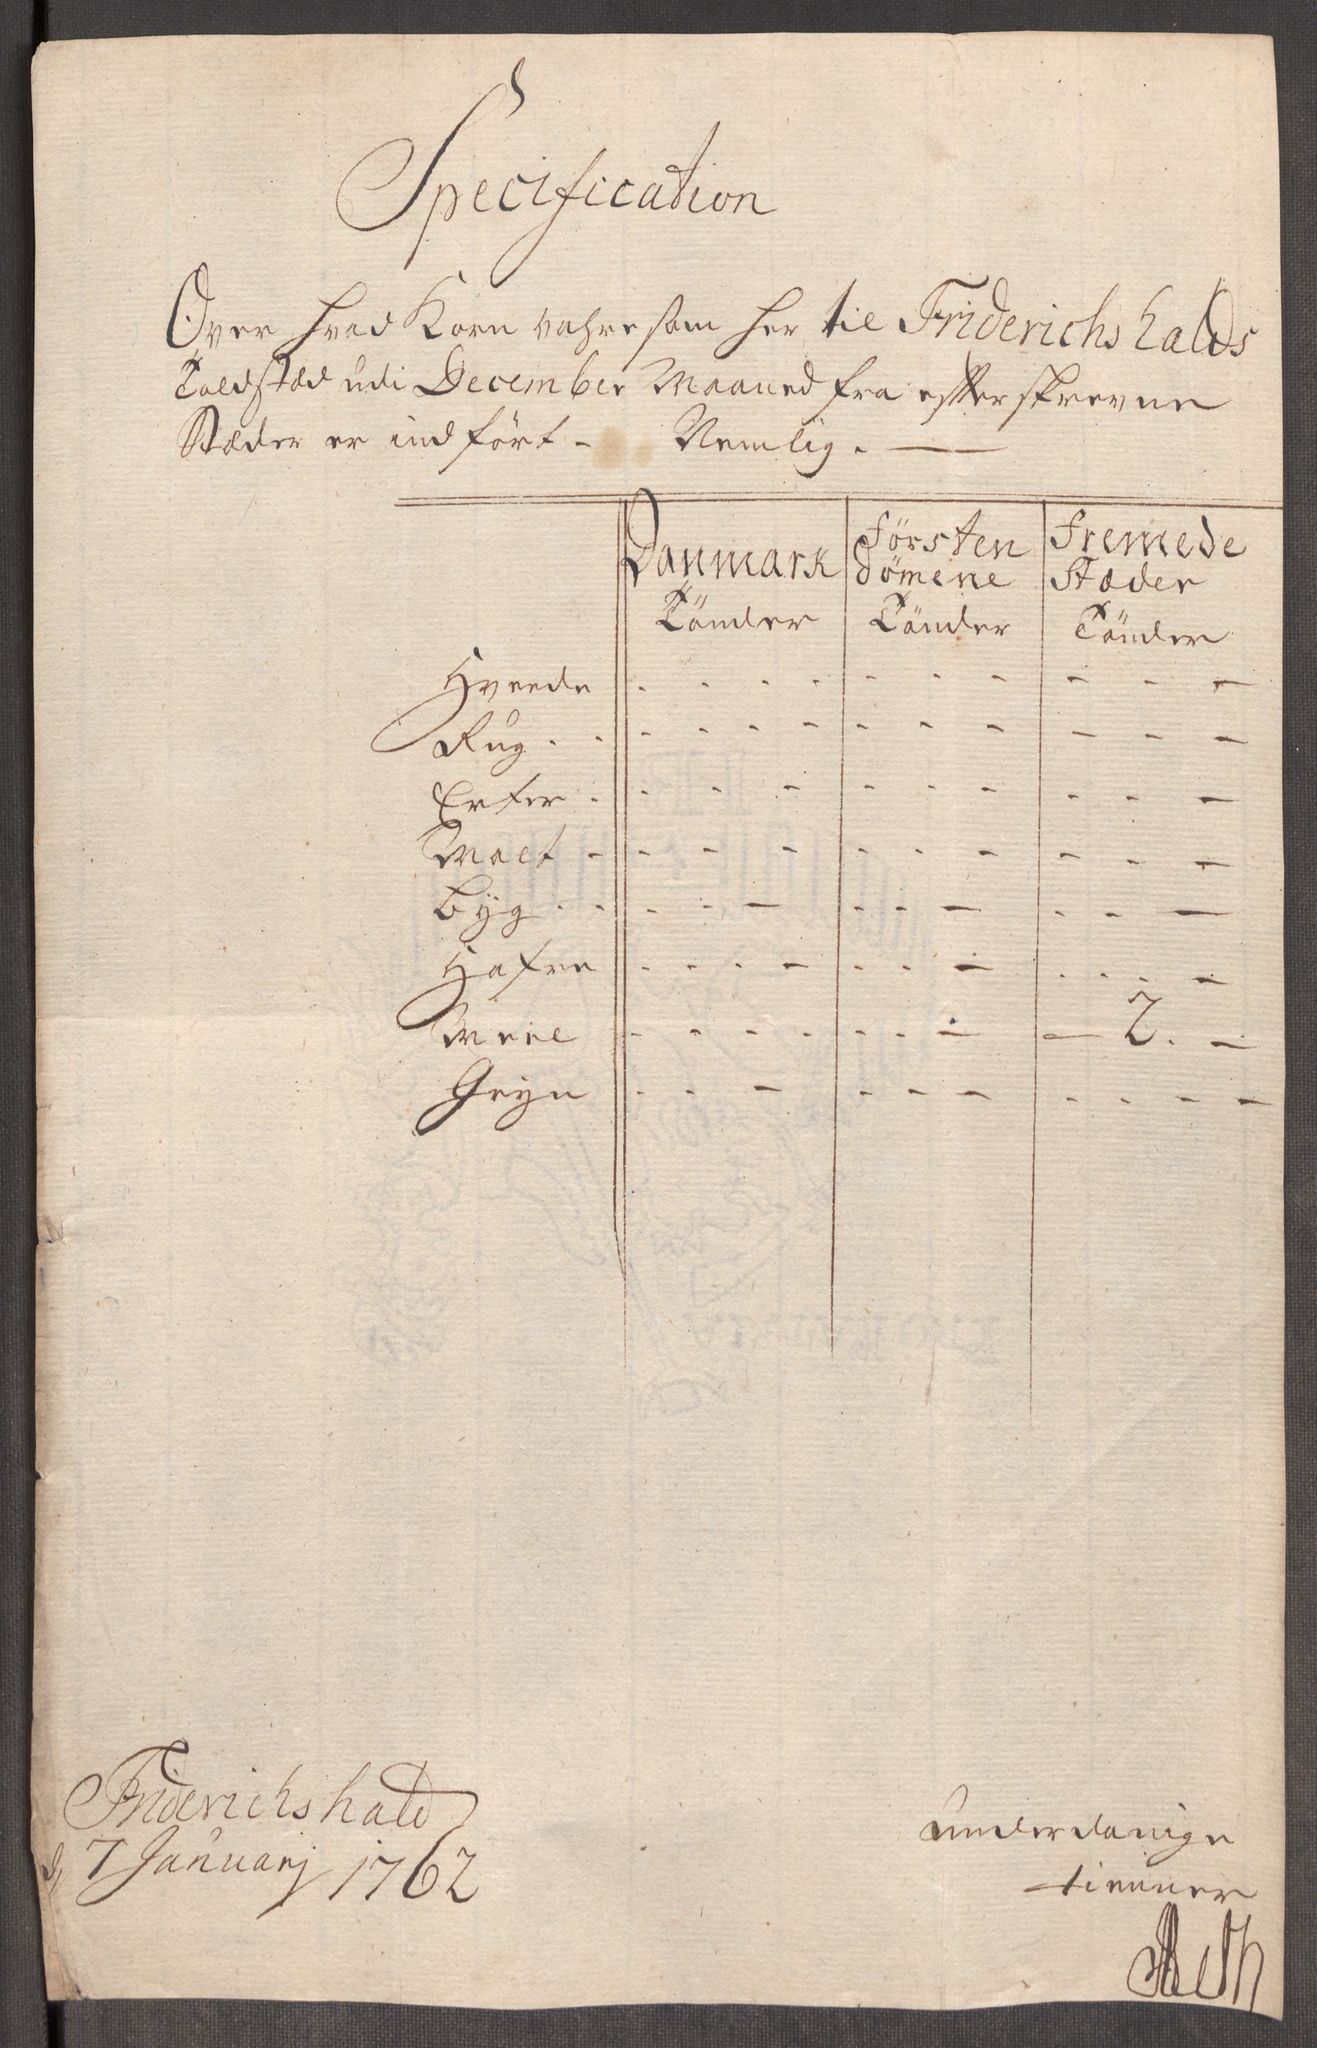 Specification
Over hvad Korn vahre som her til Friderichshalds
Toldstæd udi December Maaned fra efterskrevne
Stæder er indført - Nemlig. —
Danmark Försten Fremede
dömene Stæder
Tönder Tönder Tönder
Hveede . - - - - - - - - -
Rug . . - - - - - - - - - -
Erter . - - - - - - - - -
Malt - - - - - - - - - -
Byg . . . . - . . - . . -
Hafre . . . - . . - . . . -
Meel - - - . . . - — 2. -
Gryn . . - . - - . . - -
Friderichshald
d 7 Januarj 1762
underdanige
tienner